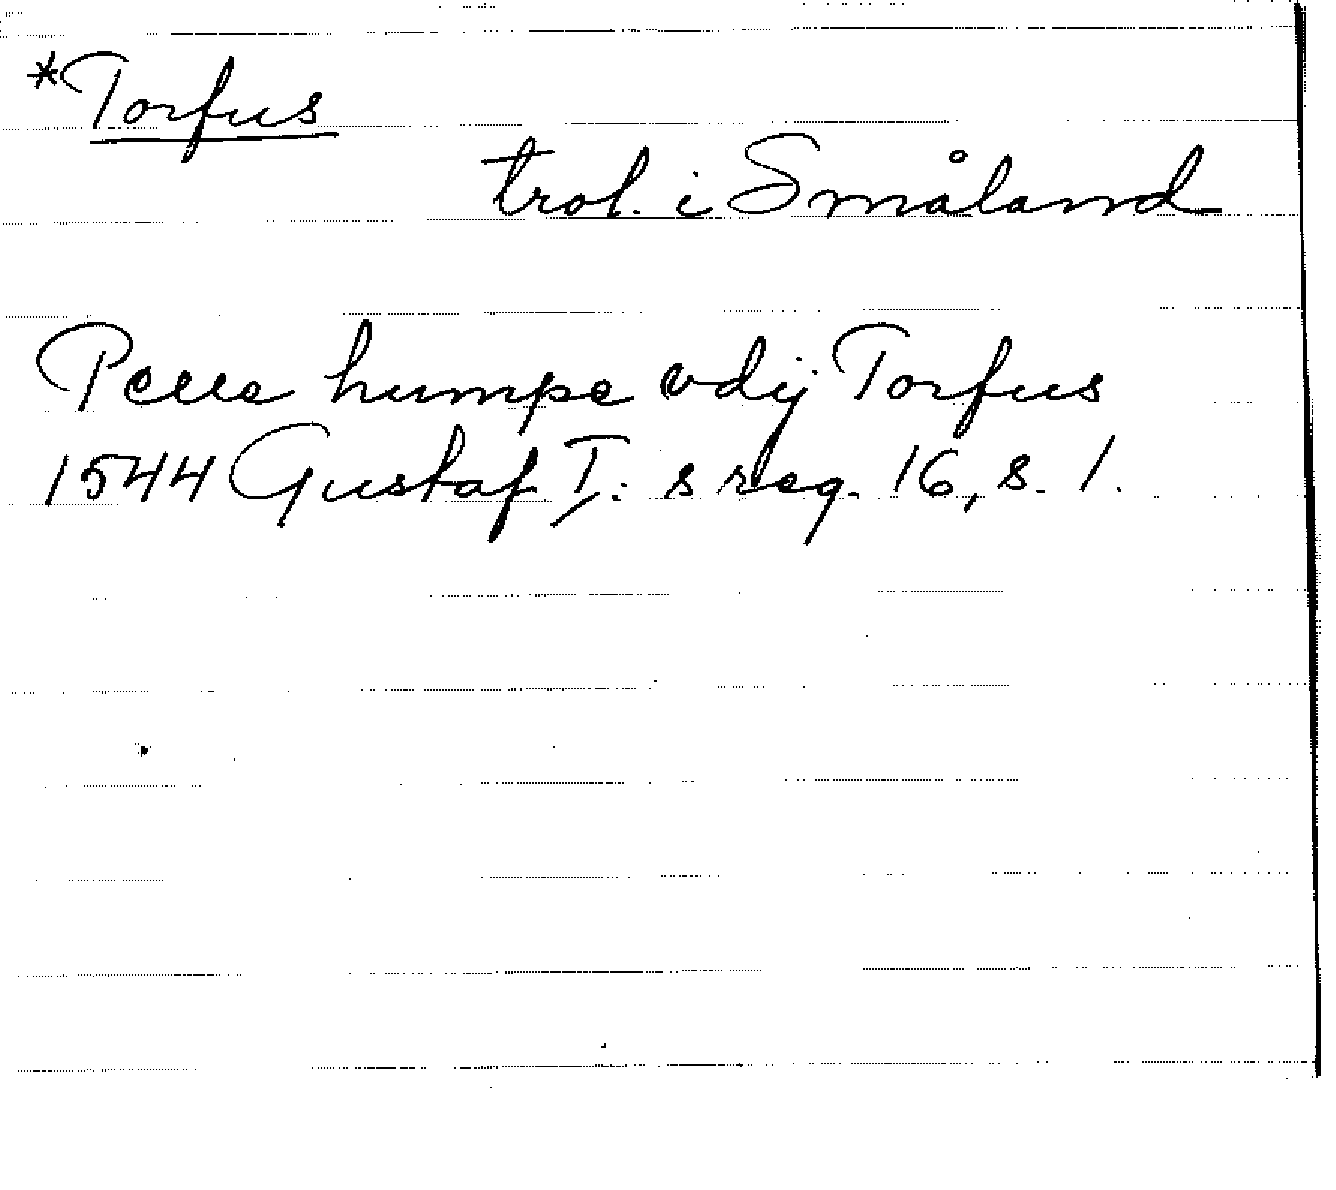 *Torfus
trol. i Småland
Pelle humpe vdij Torfus
1544 Gustaf I:s reg. 16, s. 1.